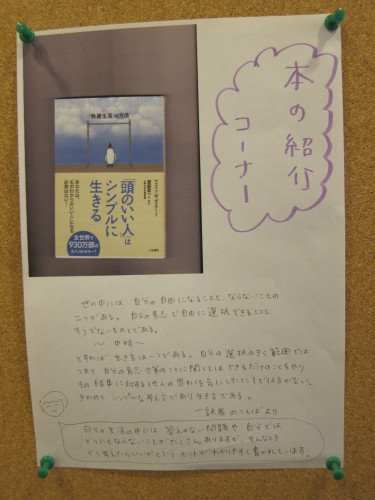 本の紹介
コーナー
「快適生活」の方法
ウエイン・W・ダイアー 著
渡部昇一 訳
「頭のいい人」は
シンプルに
生きる
全世界で
930万部の
三笠書房
世の中には 自分の自由になることと、ならないことの
二つがある。自分の意志で自由に選択できることと
そうでないものとである。
〜 中略 〜
とすれば 生き方は一つである。自分の選択のきく範囲では
つまり 自分の意志次第のことに関しては できるだけのことをやり
その結果に対する他人の思わくを気にしていたら きりがない。
きわめて シンプルな考え方であり生き方である。
―訳者のことばより
日々の生活の中には 答えのない問題や 自分では
どうにもならないことがたくさんありますが、そんなとき
どう考えたらいいかという ヒントがわかりやすく書かれています。